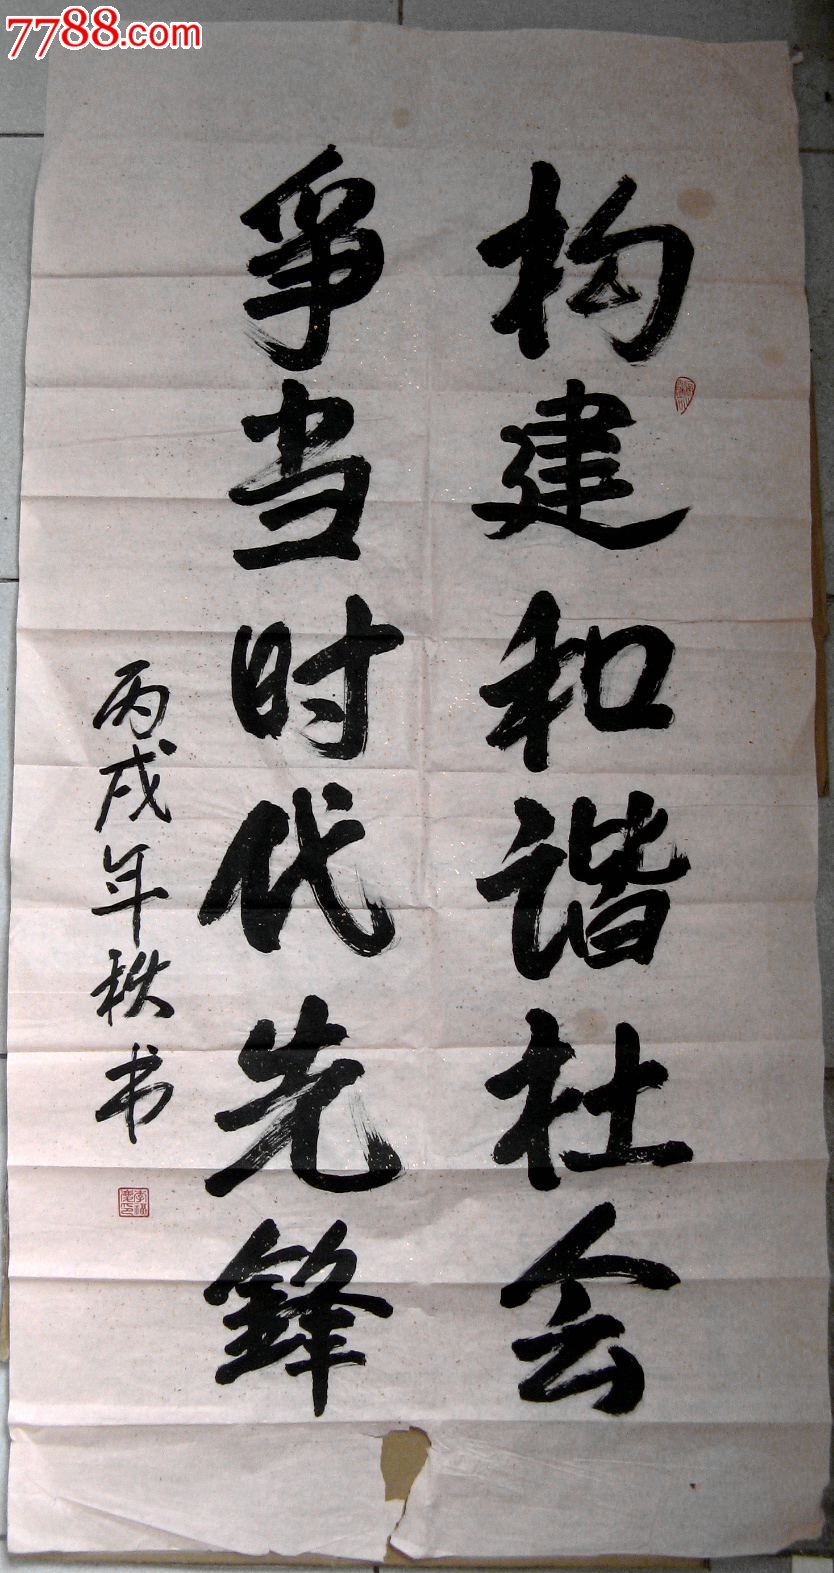 7788.com
构建和谐社会
爭当时代先鋒
丙戌年秋书